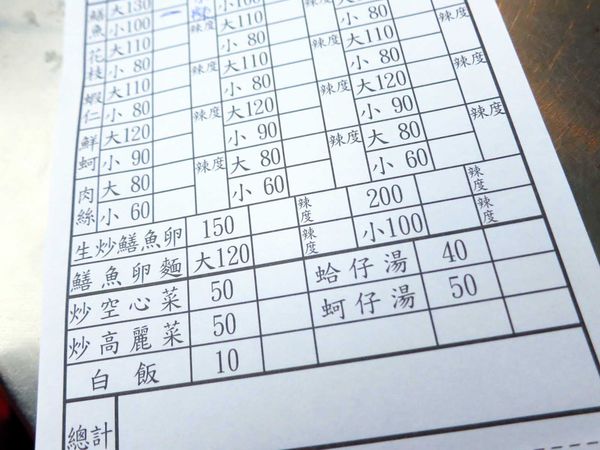 鱔魚 大130 小100
小100 大110 小 80
花枝 大110 辣度 大110 辣度 小 80 辣度
小 80 小 80 大110
蝦仁 大110 辣度 大110 辣度 小 80 辣度
小 80 小 80 大120
鮮蚵 大120 辣度 大120 辣度 小 90 辣度
小 90 小 90 大 80
肉絲 大 80 辣度 大 80 辣度 小 60 辣度
小 60 小 60
生炒鱔魚卵 150 辣度 200 辣度
鱔魚卵麵 大120 辣度 小100 辣度
炒空心菜 50 蛤仔湯 40
炒高麗菜 50 蚵仔湯 50
白飯 10
總計